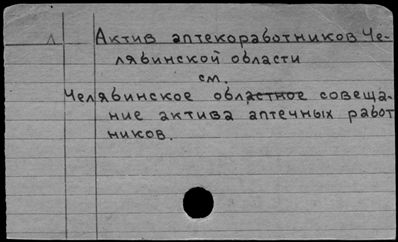 Актив аптекоработников Че-
лябинской области
см.
Челябинское областное совеща-
ние актива аптечных работ
ников.